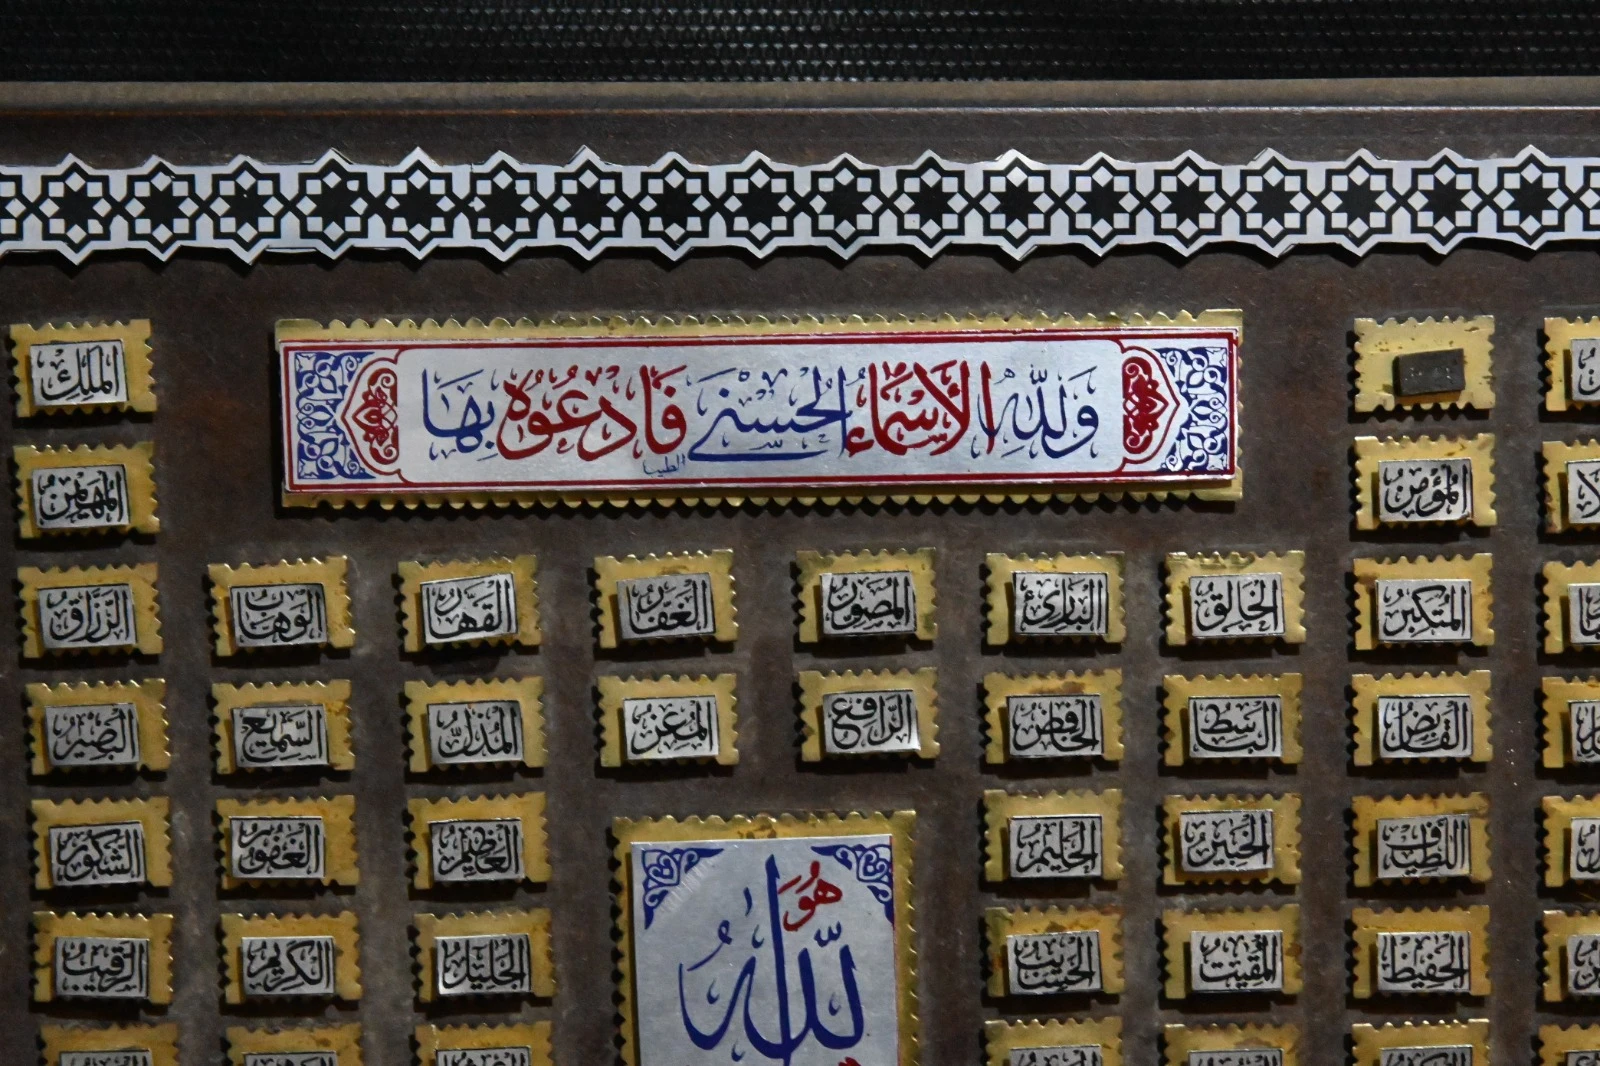 وَلِلّهِ الأَسْمَاءُ الحُسْنَى فَادْعُوهُ بِهَا
الطيب
المَلِكُ
المُؤْمِنُ
المُهَيْمِنُ
المُتَكَبِّرُ
الخَالِقُ
البَارِئُ
المُصَوِّرُ
الغَفَّارُ
القَهَّارُ
الوَهَّابُ
الرَّزَّاقُ
القَابِضُ
البَاسِطُ
الخَافِضُ
الرَّافِعُ
المُعِزُّ
المُذِلُّ
السَّمِيعُ
البَصِيرُ
اللَّطِيفُ
الخَبِيرُ
الحَلِيمُ
العَظِيمُ
الغَفُورُ
الشَّكُورُ
هُوَ
اللّٰه
الحَفِيظُ
المُقِيتُ
الحَسِيبُ
الجَلِيلُ
الكَرِيمُ
الرَّقِيبُ